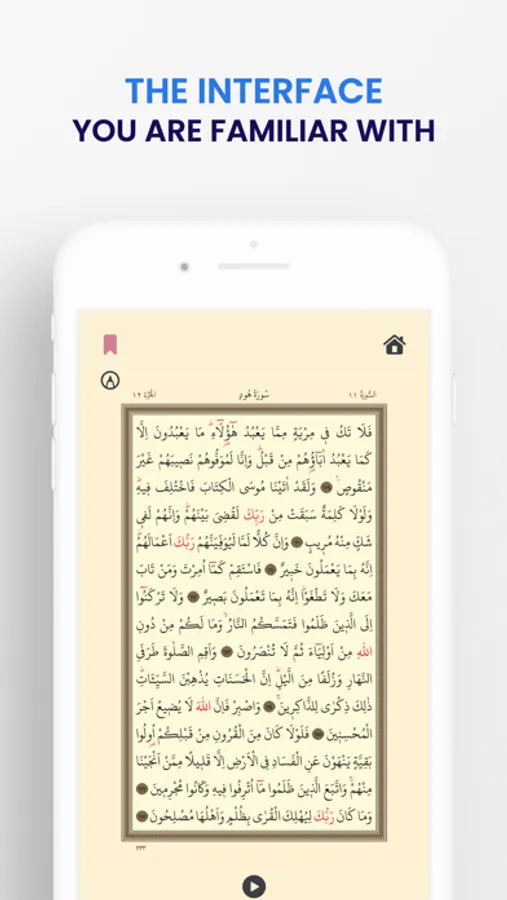 THE INTERFACE
YOU ARE FAMILIAR WITH
اَلسُّورَةُ ١١
سُورَةُ هُودٍ
اَلْجُزْءُ ١٢
فَلَا تَكُ فٖي مِرْيَةٍ مِمَّا يَعْبُدُ هٰٓؤُ۬لَٓاءِۜ مَا يَعْبُدُونَ اِلَّا
كَمَا يَعْبُدُ اٰبَٓاؤُ۬هُمْ مِنْ قَبْلُۜ وَاِنَّا لَمُوَفُّوهُمْ نَصٖيبَهُمْ غَيْرَ
مَنْقُوصٍ۟ وَلَقَدْ اٰتَيْنَا مُوسَى الْكِتَابَ فَاخْتُلِفَ فٖيهِۜ
وَلَوْلَا كَلِمَةٌ سَبَقَتْ مِنْ رَبِّكَ لَقُضِيَ بَيْنَهُمْۜ وَاِنَّهُمْ لَفٖي
شَكٍّ مِنْهُ مُرٖيبٍ وَاِنَّ كُلًّا لَمَّا لَيُوَفِّيَنَّهُمْ رَبُّكَ اَعْمَالَهُمْۜ
اِنَّهُ بِمَا يَعْمَلُونَ خَبٖيرٌ فَاسْتَقِمْ كَمَٓا اُمِرْتَ وَمَنْ تَابَ
مَعَكَ وَلَا تَطْغَوْاۜ اِنَّهُ بِمَا تَعْمَلُونَ بَصٖيرٌ وَلَا تَرْكَنُٓوا
اِلَى الَّذٖينَ ظَلَمُوا فَتَمَسَّكُمُ النَّارُۙ وَمَا لَكُمْ مِنْ دُونِ
اللّٰهِ مِنْ اَوْلِيَٓاءَ ثُمَّ لَا تُنْصَرُونَ وَاَقِمِ الصَّلٰوةَ طَرَفَيِ
النَّهَارِ وَزُلَفًا مِنَ الَّيْلِۜ اِنَّ الْحَسَنَاتِ يُذْهِبْنَ السَّيِّـَٔاتِۜ
ذٰلِكَ ذِكْرٰى لِلذَّاكِرٖينَۚ وَاصْبِرْ فَاِنَّ اللّٰهَ لَا يُضٖيعُ اَجْرَ
الْمُحْسِنٖينَ فَلَوْلَا كَانَ مِنَ الْقُرُونِ مِنْ قَبْلِكُمْ اُو۬لُوا
بَقِيَّةٍ يَنْهَوْنَ عَنِ الْفَسَادِ فِي الْاَرْضِ اِلَّا قَلٖيلًا مِمَّنْ اَنْجَيْنَا
مِنْهُمْۚ وَاتَّبَعَ الَّذٖينَ ظَلَمُوا مَٓا اُتْرِفُوا فٖيهِ وَكَانُوا مُجْرِمٖينَ
وَمَا كَانَ رَبُّكَ لِيُهْلِكَ الْقُرٰى بِظُلْمٍ وَاَهْلُهَا مُصْلِحُونَ
٢٣٣